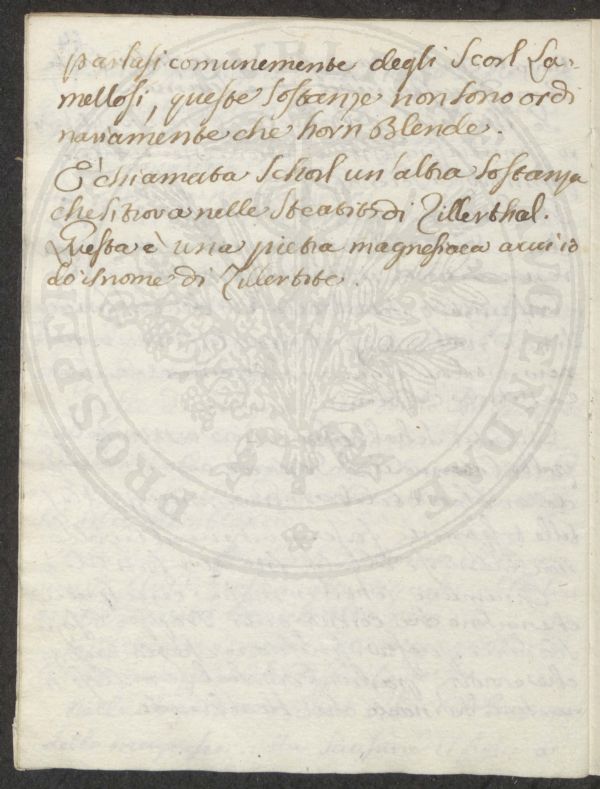 parlasi comunemente degli Scorl La-
mellosi, queste sostanze non sono ordi
nariamente che horn Blende.
E' chiamata Schorl un' altra sostanza
che si trova nelle Steatiti di Zillerthal.
Questa è una pietra magnesiaca a cui io
do il nome di Zillertite.
PROSPER
GENDAE